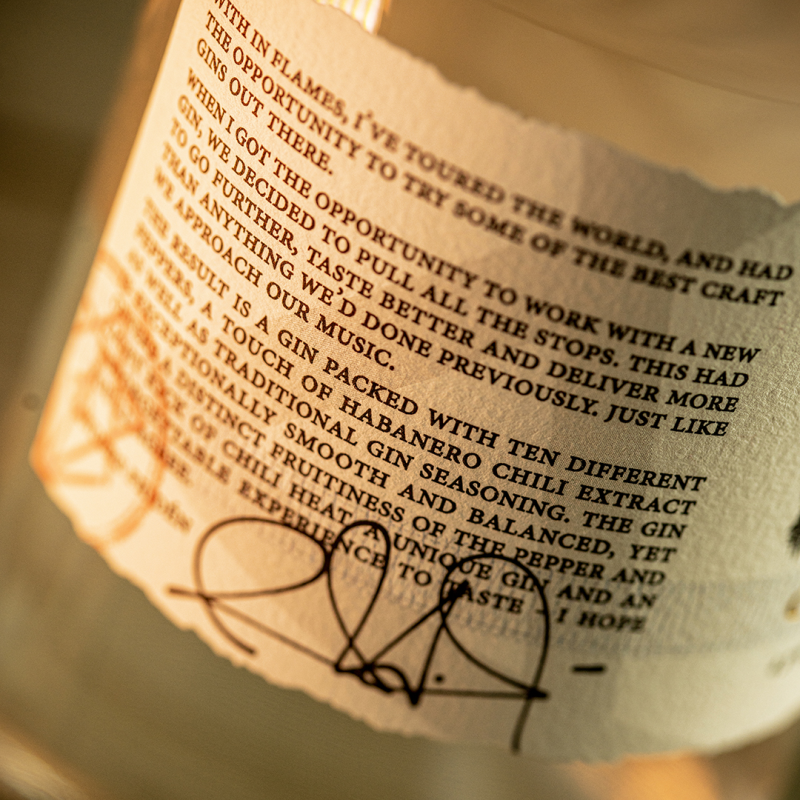 WITH IN FLAMES, I'VE TOURED THE WORLD, AND HAD
THE OPPORTUNITY TO TRY SOME OF THE BEST CRAFT
GINS OUT THERE.
WHEN I GOT THE OPPORTUNITY TO WORK WITH A NEW
GIN, WE DECIDED TO PULL ALL THE STOPS. THIS HAD
TO GO FURTHER, TASTE BETTER AND DELIVER MORE
THAN ANYTHING WE'D DONE PREVIOUSLY. JUST LIKE
WE APPROACH OUR MUSIC.
THE RESULT IS A GIN PACKED WITH TEN DIFFERENT
PEPPERS, A TOUCH OF HABANERO CHILI EXTRACT
AS WELL AS TRADITIONAL GIN SEASONING. THE GIN
EXCEPTIONALLY SMOOTH AND BALANCED, YET
A DISTINCT FRUITINESS OF THE PEPPER AND
OF CHILI HEAT. A UNIQUE GIN AND AN
EXPERIENCE TO TASTE - I HOPE